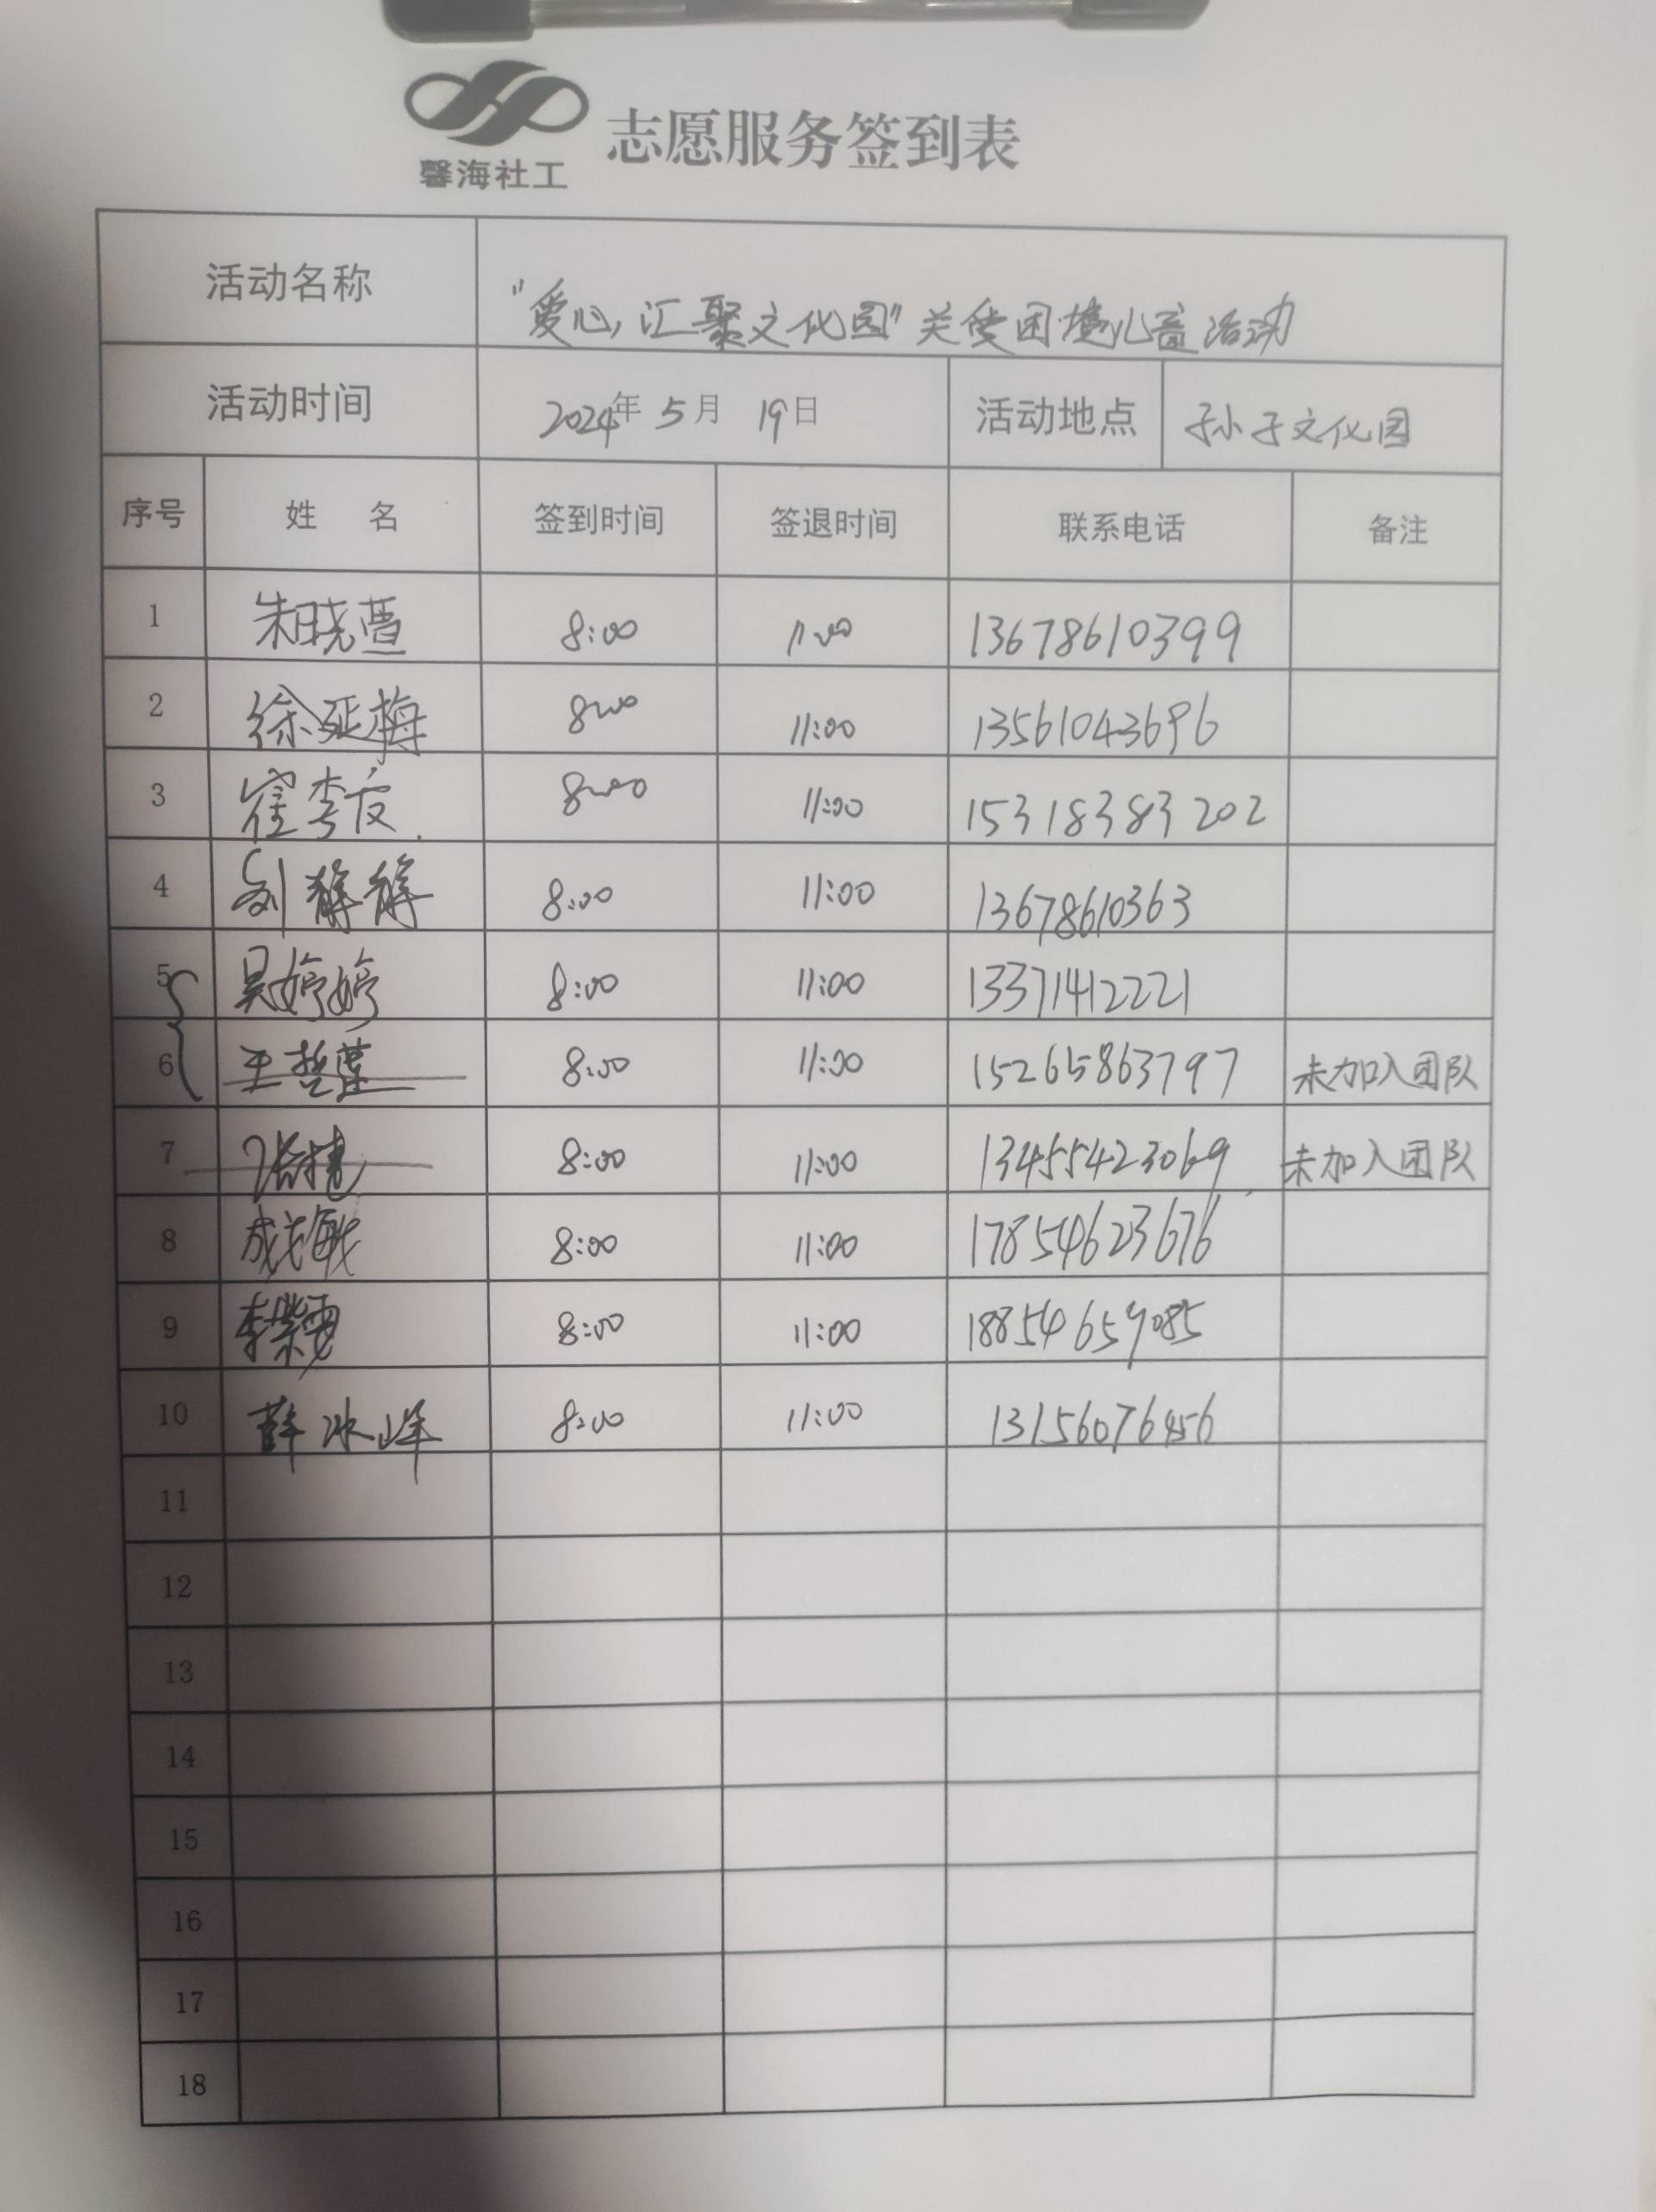 馨海社工 志愿服务签到表
活动名称 "爱心汇聚文化园"关爱困境儿童活动
活动时间 2024年 5月 19日 活动地点 孙子文化园
序号 姓 名 签到时间 签退时间 联系电话 备注
1 朱晓 8:00 11:00 13678610399
2 徐延梅 8:00 11:00 13561043696
3 崔李 8:00 11:00 15318383202
4 刘静静 8:00 11:00 13678610363
5 吴婷婷 8:00 11:00 13371412221
6 王哲 8:00 11:00 15265863797 未加入团队
7 张捷 8:00 11:00 13455423069 未加入团队
8 成敏 8:00 11:00 17854623676
9 李紫 8:00 11:00 18854659085
10 薛冰峰 8:00 11:00 13156076456
11
12
13
14
15
16
17
18